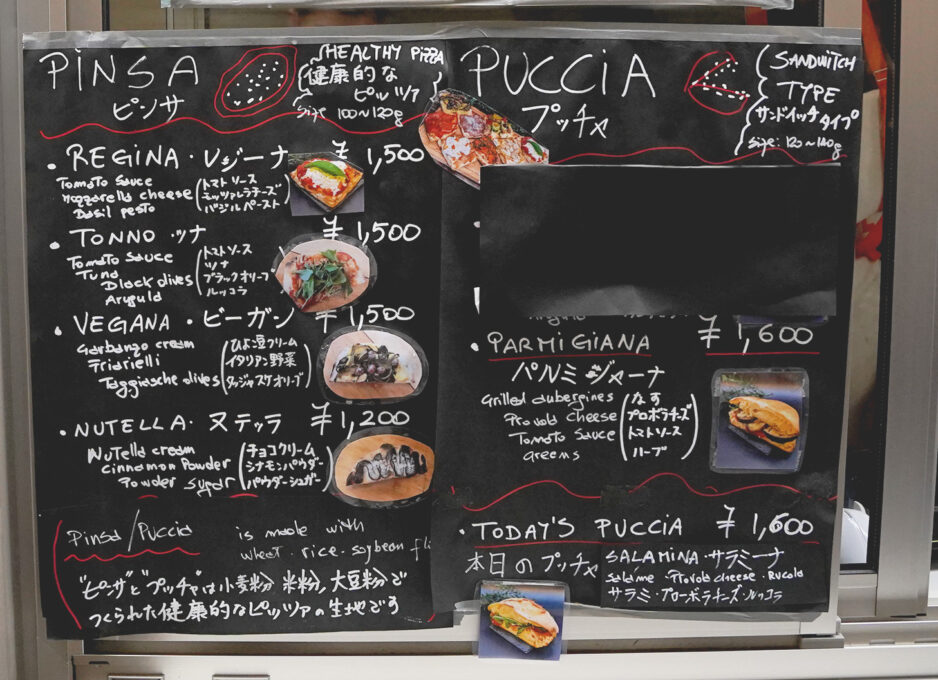 PINSA
ピンサ
HEALTHY PIZZA
健康的な
ピッツァ
Size 100~120g
REGINA・レジーナ ¥ 1,500
Tomato Sauce
Mozzarella cheese
Basil pesto
トマトソース
モッツァレラチーズ
バジルペースト
TONNO・ツナ ¥ 1,500
Tomato Sauce
Tuna
Black olives
Arugula
トマトソース
ツナ
ブラックオリーブ
ルッコラ
VEGANA・ビーガン ¥ 1,500
Garbanzo cream
Friarielli
Taggiasche olives
ひよこ豆クリーム
イタリアン野菜
タッジャスケオリーブ
NUTELLA・ヌテッラ ¥1,200
Nutella cream
cinnamon Powder
Powder sugar
チョコクリーム
シナモンパウダー
パウダーシュガー
Pinsa/Puccia is made with
wheat・rice・soybean
"ピンサ"と"プッチャ"は小麦粉 米粉, 大豆粉で
つくられた健康的なピッツァの生地です
PUCCIA
プッチャ
SANDWITCH
TYPE
サンドイッチタイプ
Size: 120~140g
¥ 1,600
PARMIGIANA
パルミジャーナ
Grilled aubergines
Provola cheese
Tomato Sauce
Greens
なす
プロボラチーズ
トマトソース
ハーブ
TODAY'S PUCCIA ¥ 1,600
本日のプッチャ
SALAMINA・サラミーナ
Salame・Provola cheese・Rucola
サラミ・プローボラチーズ・ルッコラ